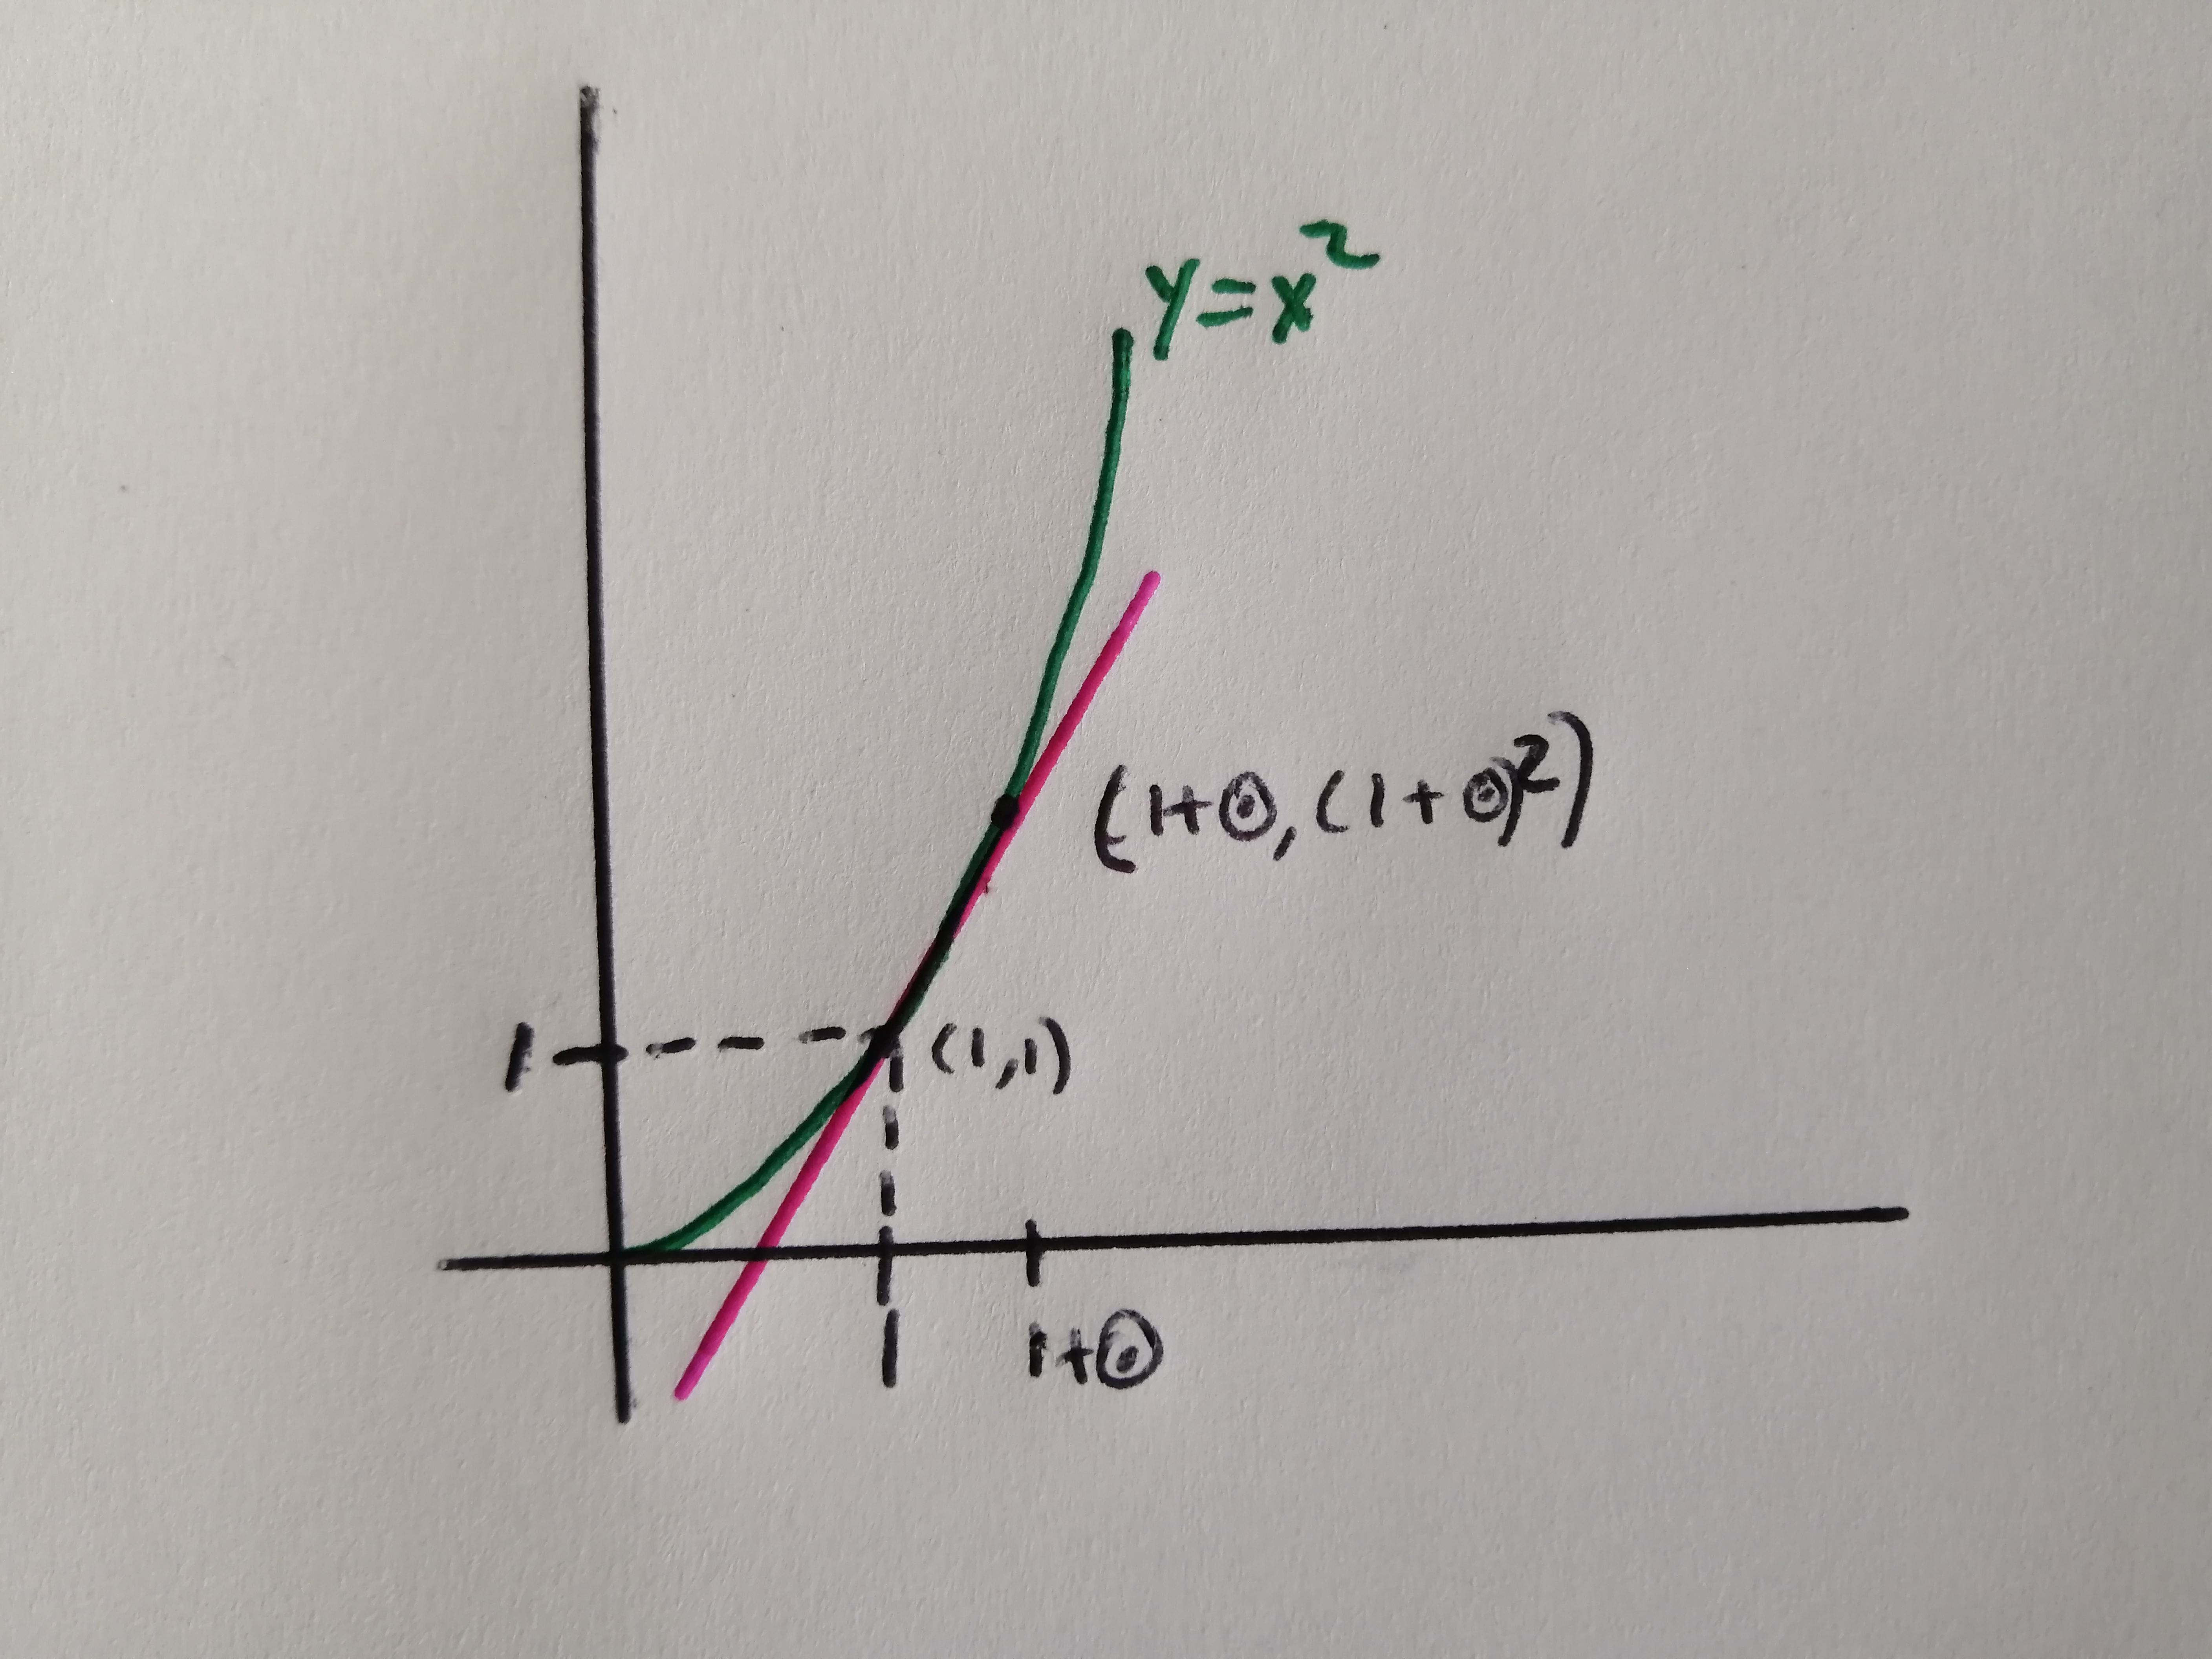 y=x²
(1+⊙,(1+⊙)²)
1
(1,1)
1
1+⊙